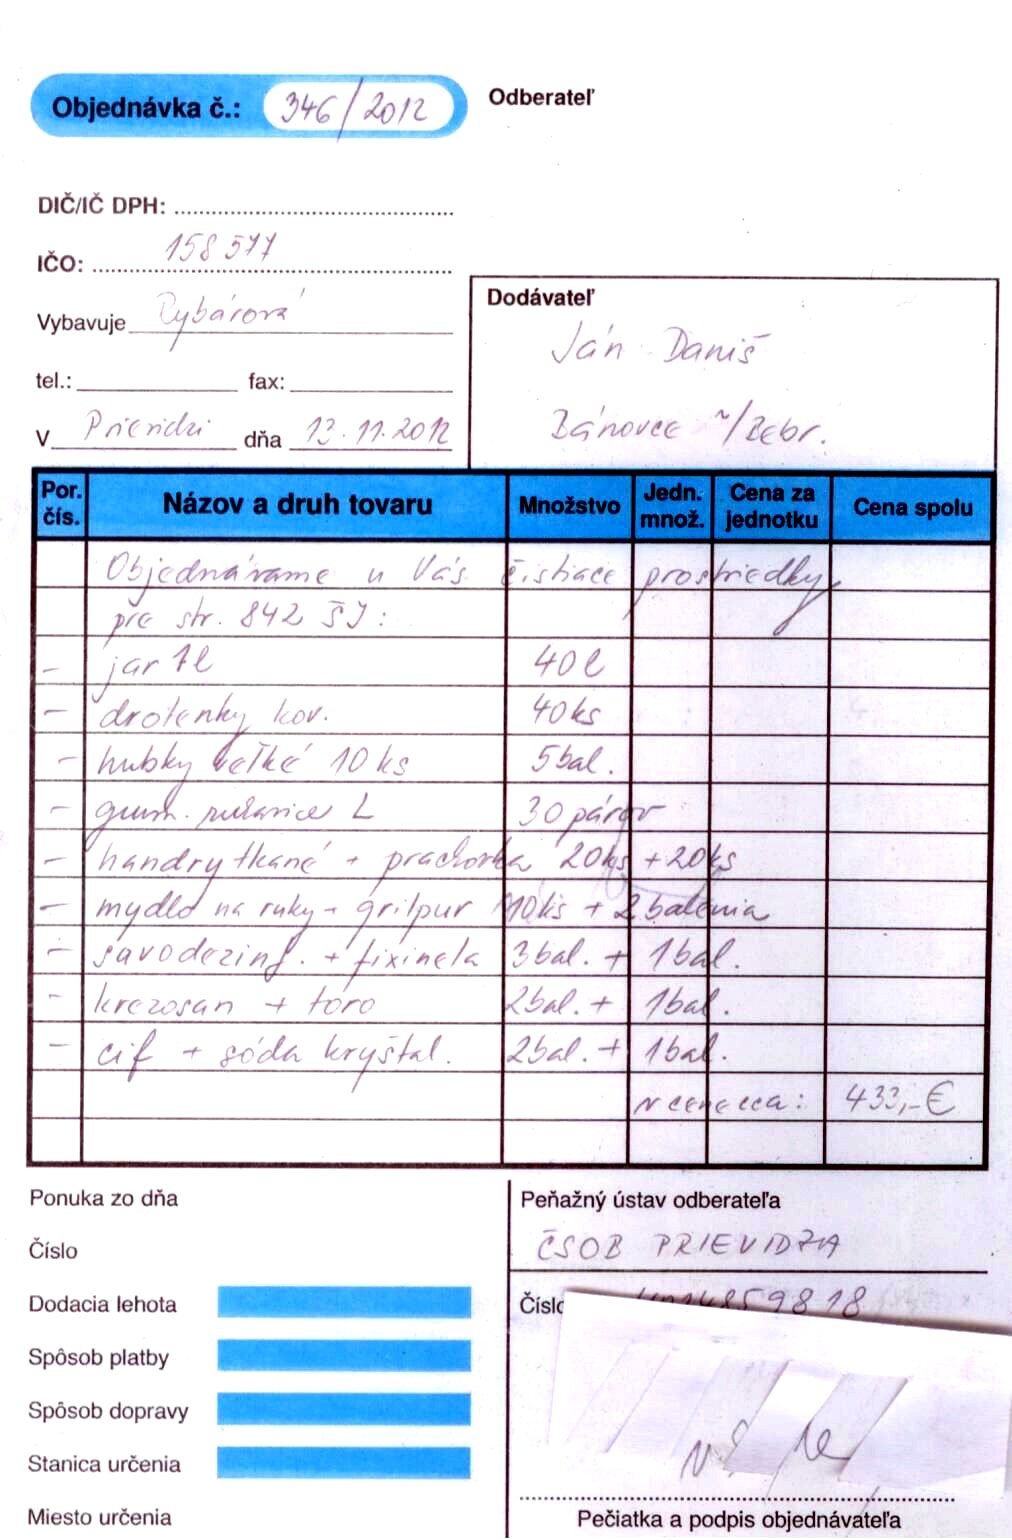 Objednávka č.: 346/2012
Odberateľ
DIČ/IČ DPH:
IČO: 158 577
Vybavuje Rybárová
tel.: fax:
V Prievidzi dňa 13.11.2012
Dodávateľ
Ján Daniš
Bánovce n/Bebr.
Por. čís. Názov a druh tovaru Množstvo Jedn. množ. Cena za jednotku Cena spolu
Objednávame u Vás čistiace prostriedky
pre str. 842 ŠJ:
- jar 1l 40l
- drôtenky kov. 40ks
- hubky veľké 10ks 5bal.
- gum. rukavice L 30 párov
- handry tkané + prachovka 20ks + 20ks
- mydlo na ruky - grilpur 10ks + 2 balenia
- savodezinf. + fixinela 3bal. + 1bal.
- krezosan + toro 2bal. + 1bal.
- cif + sóda kryštal. 2bal. + 1bal.
v cene cca: 433,-€
Ponuka zo dňa
Číslo
Dodacia lehota
Spôsob platby
Spôsob dopravy
Stanica určenia
Miesto určenia
Peňažný ústav odberateľa
ČSOB PRIEVIDZA
Čísl
Pečiatka a podpis objednávateľa